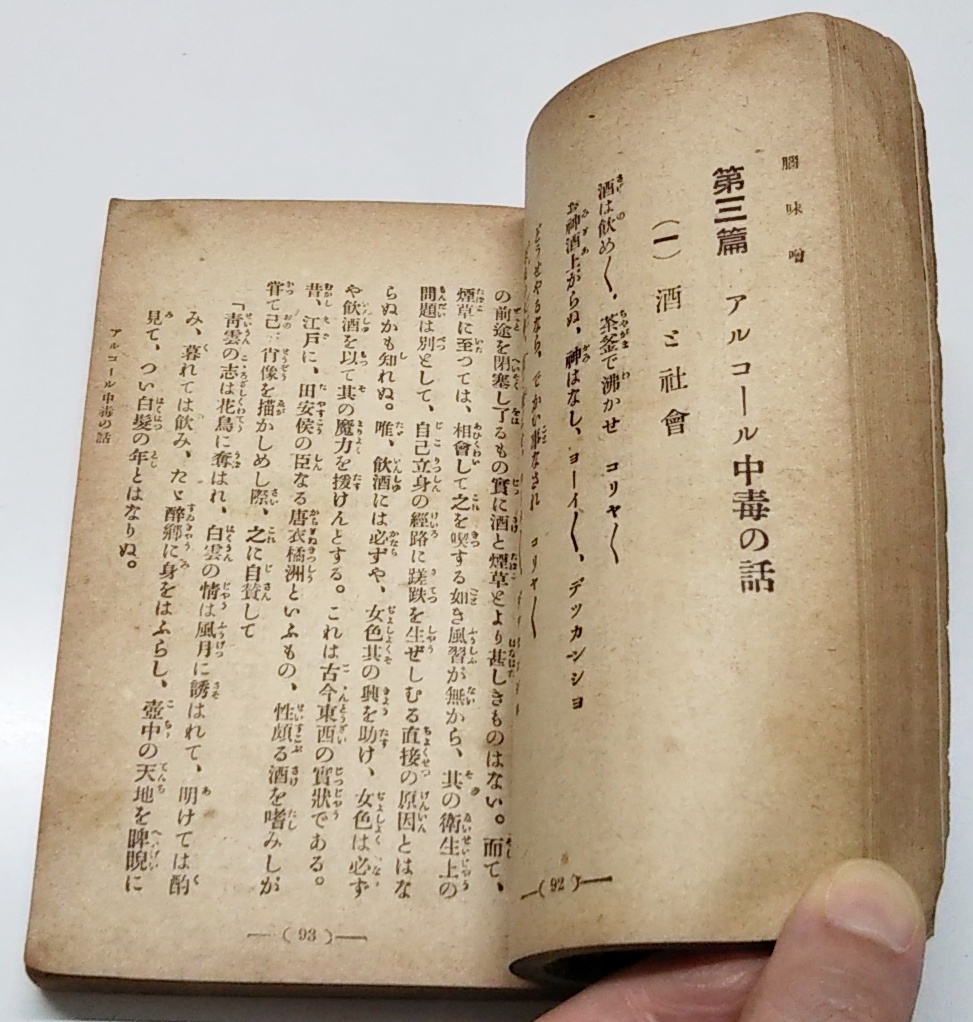 腦味噌
第三篇 アルコール中毒の話
(一) 酒と社會
酒は飲め〱、茶釜で沸かせ コリャ〱
お神酒上がらぬ、神はなし、ヨーイ〱、デッカンショ
どうせやるなら、でかい事なされ コリャ〱
—(92)—
の前途を閉塞し了るもの實に酒と煙草とより甚しきものはない。而て、
煙草に至つては、相會して之を喫する如き風習が無から、其の衛生上の
問題は別として、自己立身の經路に蹉跌を生ぜしむる直接の原因とはな
らぬかも知れぬ。唯、飲酒には必ずや、女色其の興を助け、女色は必ず
や飲酒を以て其の魔力を援けんとする。これは古今東西の實狀である。
昔、江戸に、田安侯の臣なる唐衣橘洲といふもの、性頗る酒を嗜みしが
甞て己に肖像を描かしめし際、之に自賛して
「靑雲の志は花鳥に奪はれ、白雲の情は風月に誘はれて、明けては酌
み、暮れては飲み、たゞ醉鄕に身をはふらし、壺中の天地を睥睨に
見て、つい白髮の年とはなりぬ。
アルコール中毒の話
—(93)—